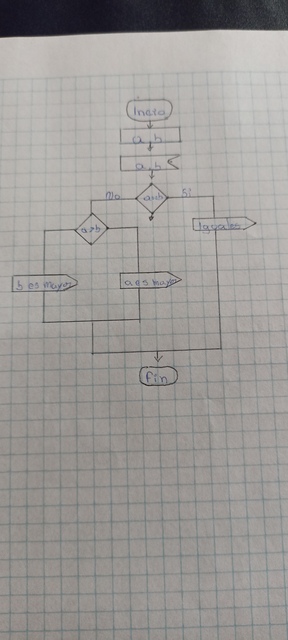 Inicio
a,b
a,b
no
a=b
Si
a>b
Iguales
b es mayor
a es mayor
fin